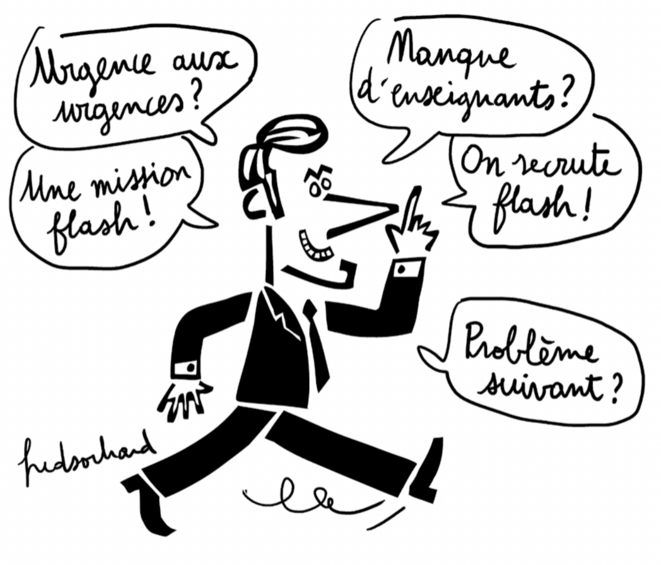 Urgence aux
urgences?
Une mission
flash!
Manque
d'enseignants?
On recrute
flash!
Problème
suivant?
fredsochard